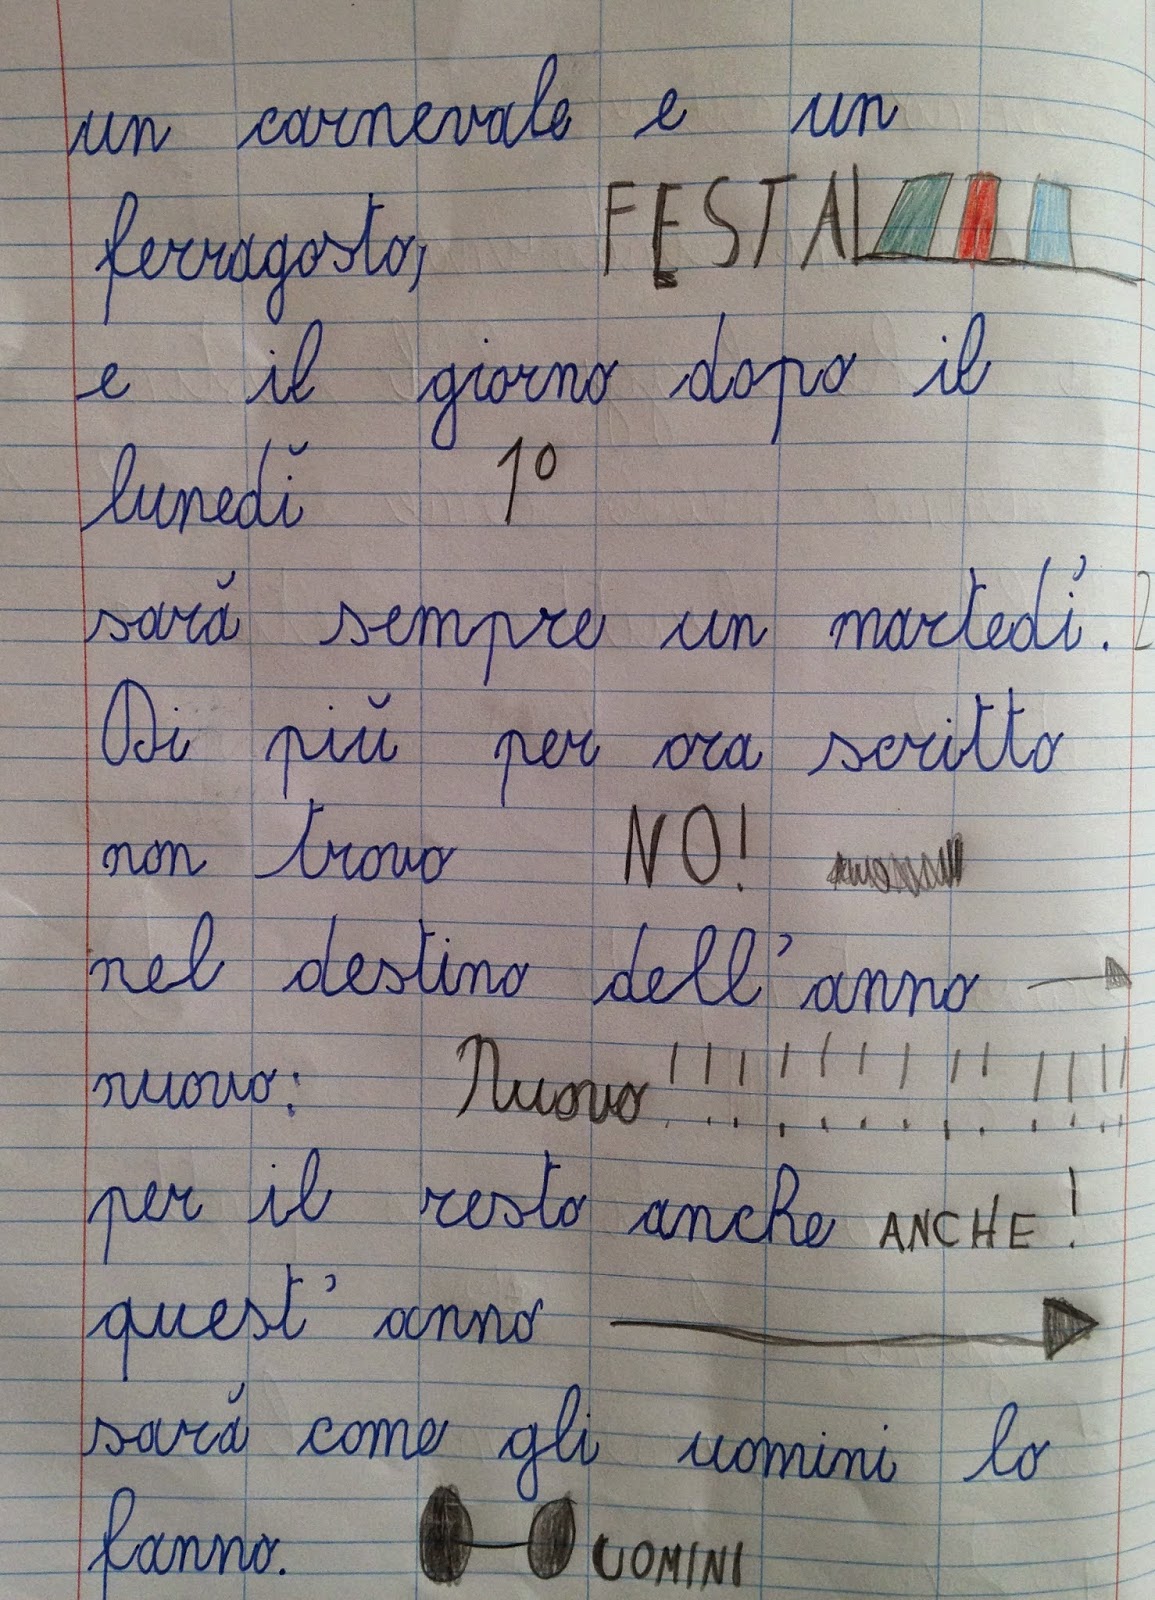 un carnevale e un
ferragosto, FESTA
e il giorno dopo il
lunedì 1º
sarà sempre un martedì. 2
Di più per ora scritto
non trovo NO!
nel destino dell'anno
nuovo: Nuovo!!!!!!!!!!!!!!
per il resto anche ANCHE!
quest'anno
sarà come gli uomini lo
fanno. UOMINI